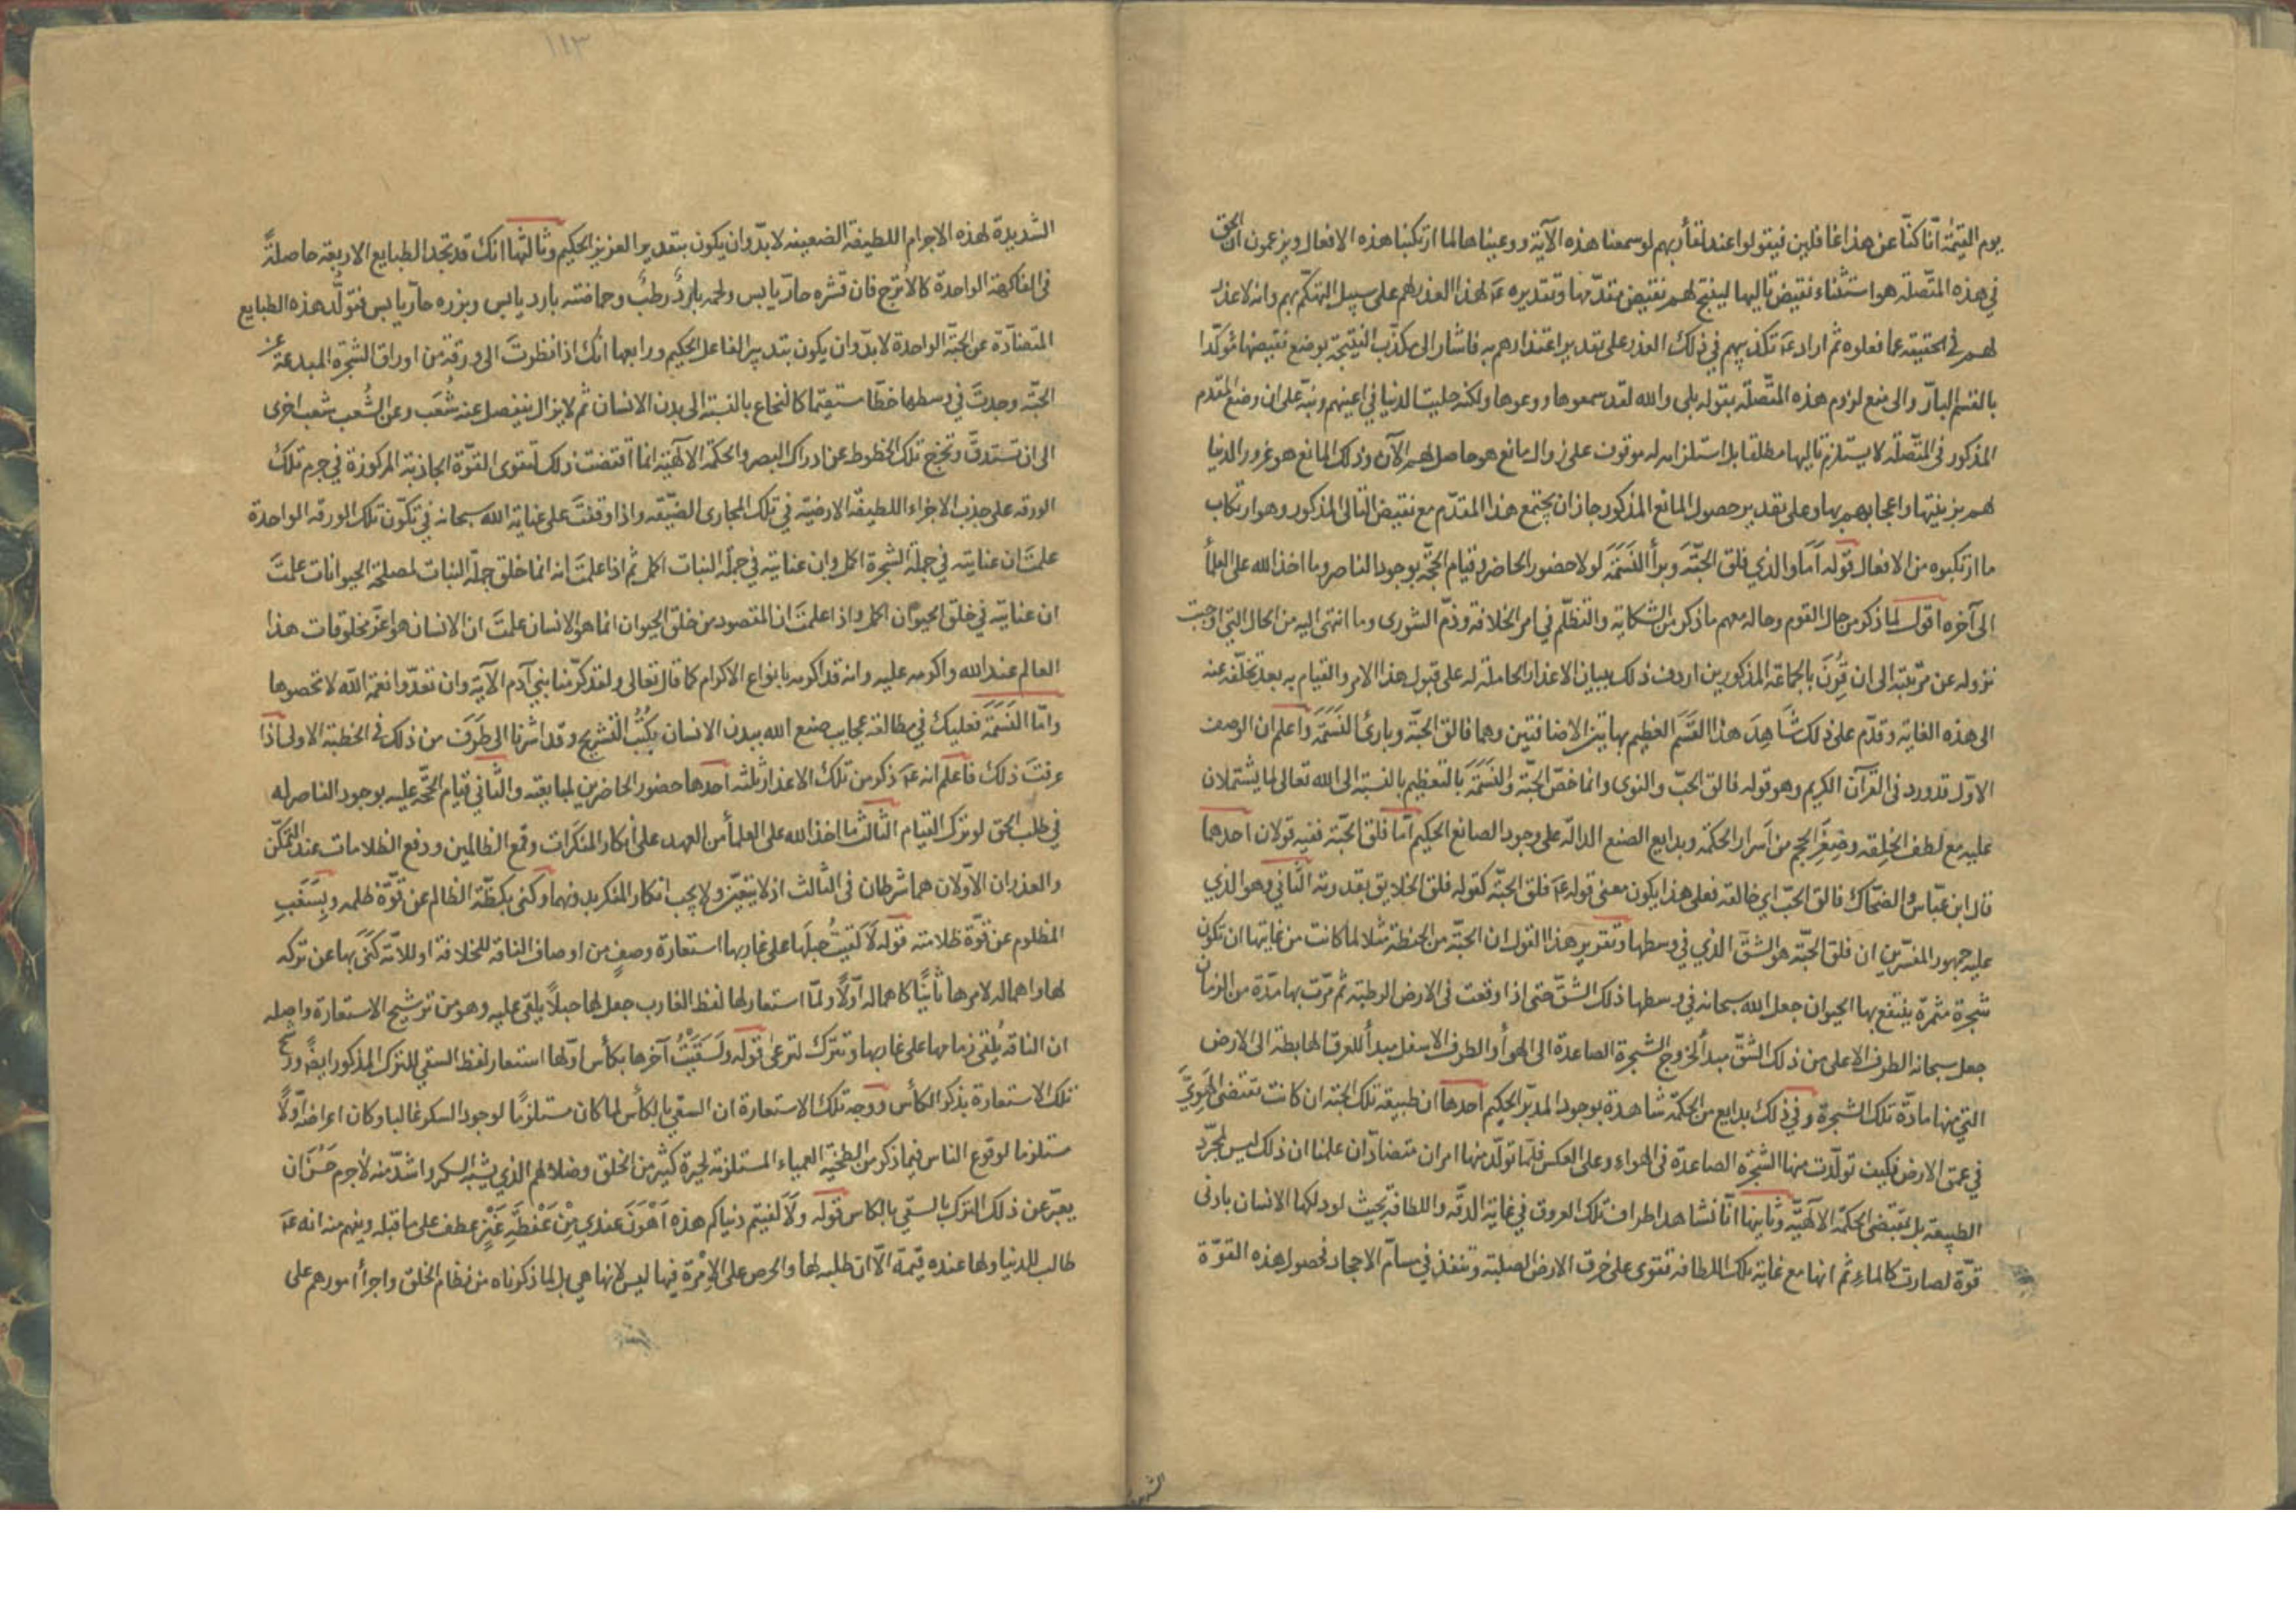 يوم القيمة انّا كنّا عن هذا غافلين فيقولوا عند لقآء ربهم لو سمعنا هذه الآية ووعيناها لما ارتكبنا هذه الافعال ويزعمون ان الحق
في هذه المتصلة هو استثناء نقيض تاليها لينتج لهم نقيض مقدّمها وتقديره عَ لهذا العذر لهم على سبيل التهكّم بهم وانه لا عذر
لهم في الحقيقة عما فعلوه ثم اراد عَ تكذيبهم في ذلك العذر على تقدير اعتذارهم به فاشار الى تكذّب النتيجة بوضع نقيضها مؤكّدا
بالقسم البارّ والى منع لزوم هذه المتّصلة بقوله بلى والله لقد سمعوها ووعوها ولكنه حليت الدنيا في اعينهم ونبّه على ان وضع المقدم
المذكور في المتّصلة لا يستلزم تاليها مطلقا بل استلزامه له موقوف على زوال مانع هو حاصل لهم الآن وذلك المانع هو غرور الدنيا
لهم بزينتها واعجابهم بها وعلى تقدير حصول المانع المذكور جاز ان يجتمع هذا المقدّم مع نقيض التالى المذكور وهو ارتكاب
ما ارتكبوه من الافعال قوله اَمَا والذي فلق الحبّة وبرأ النَسَمَة لولا حضور الحاضر وقيام الحجّة بوجود الناصر وما اخذ الله على العلمأ
الى آخره اقول لما ذكر من حال القوم وحاله معهم ما ذكر من الشكاية والتظلّم في امر الخلافة وذمّ الشورى وما انتهى اليه من الحال التي اوجبت
نزوله عن مرتبته الى ان قُرِنَ بالجماعة المذكورين اردف ذلك ببيان الاعذار الحاملة له على قبول هذا الامر والقيام به بعد تخلّفه عنه
الى هذه الغاية وقدّم على ذلك شاهِدَ هذا القَسَم العظيم بهاتين الاضافتين وهما فالق الحبّة وبارئ النَسَمَة واعلم ان الوصف
الاوّل قد ورد في القرآن الكريم وهو قوله فالق الحبّ والنوى وانما خصّ الحبّة والنَسَمَة بالتعظيم بالنسبة الى الله تعالى لما يشتملان
عليه مع لطف الخِلقه وصِغَر الحجم من اسرار الحكمة وبدايع الصنع الدالّة على وجود الصانع الحكيم امّا فلق الحبّة ففيه قولان احدهما
قال ابن عبّاس والضحّاك فالق الحبّ اي خالقه فعلى هذا يكون معنى قوله عَ فلق الحبّة كقوله فلق الخلايق بقدرته الثّاني وهو الذي
عليه جمهور المفسّرين ان فلق الحبّة هو الشقّ الذي في وسطها وتقرير هذا القول ان الحبّة من الحنطة مثلا لما كانت من غايتها ان تكون
شجرة مثمرة ينتفع بها الحيوان جعل الله سبحانه في وسطها ذلك الشقّ حتى اذا وقعت في الارض الرطبة ثم مرّت بها مدّة من الزمان
جعل سبحانه الطرف الاعلى من ذلك الشقّ مبدأ لخروج الشجرة الصاعدة الى الهوأ والطرف الاسفل مبدأ للعرق الهابطة الى الارض
التي منها مادّة تلك الشجرة وفي ذلك بدايع من الحكمة شاهدة بوجود المدبّر الحكيم احدها ان طبيعة تلك الحبّة ان كانت تقتضى الهَوِيَّ
في عمق الارض فكيف تولّدت منها الشجرة الصاعدة في الهواء وعلى العكس فلمّا تولّد منها امران متضادّان علمنا ان ذلك ليس لمجرّد
الطبيعة بل بمقتضى الحكمة الالهيّة وثانيها انّا نشاهد اطراف تلك العروق في غاية الدقّة واللطافة بحيث لو دلكها الانسان بادنى
قوّة لصارت كالماء ثم انها مع غاية تلك اللطافة تقوى على خرق الارض الصلبة وتنفذ في مسامّ الاحجار فحصول هذه القوّة
الش
١١٣
الشديدة لهذه الاجرام اللطيفة الضعيفه لا بدّ وان يكون بتقدير العزيز الحكيم وثالثها انك قد تجد الطبايع الاربعة حاصلةً
في الفاكهة الواحدة كالاُترج فان قشره حارّ يابس ولحمه باردٌ رطبٌ وحماضته بارد يابس وبزره حارّ يابس فتولّد هذه الطبايع
المتضادّة عن الحبّة الواحدة لا بدّ وان يكون بتدبير الفاعل الحكيم ورابعها انك اذا نظرتَ الى ورقة من اوراق الشجرة المبدعة عن
الحبّة وجدتَ في وسطها خطّا مستقيما كالنخاع بالنسبة الى بدن الانسان ثم لا يزال ينفصل عنه شُعَب وعن الشُعب شعب اخرى
الى ان تستدقّ وتخرج تلك الخطوط عن ادراك البصر والحكمة الالهيّة انما اقتضت ذلك لتقوى القوّة الجاذبة المركوزة في جرم تلك
الورقه على جذب الاجزاء اللطيفة الارضيّة في تلك المجارى الضيّقه واذا وقفتَ على عناية الله سبحانه في تكوّن تلك الورقه الواحدة
علمتَ ان عنايته في جملة الشجرة اكمل وان عنايته في جملة النبات اكمل ثم اذا علمتَ انه انما خلق جملة النبات لمصلحة الحيوانات علمتَ
ان عنايته في خلق الحيوان اكمل واذا علمتَ ان المقصود من خلق الحيوان انما هو الانسان علمتَ ان الانسان هو اعزّ مخلوقات هذا
العالم عند الله واكرمه عليه وانه قد اكرمه بانواع الاكرام كما قال تعالى ولقد كرّمنا بني آدم الآية وان تعدّوا نعمة الله لا تحصوها
وامّا النَسَمَة فعليك في مطالعة عجايب صنع الله ببدن الانسان بكُتُب التشريح وقد اشرنا الى طَرَفَ من ذلك في الخطبة الاولى اذا
عرفتَ ذلك فاعلم انه عَ ذكر من تلك الاعذار ثلثه احدها حضور الحاضرين لمبايعته والثّاني قيام الحجّة عليه بوجود الناصر له
في طلب الحق لو ترك القيام الثالث ما اخذ الله على العلمأ من العهد على انكار المنكرات وقمع الظالمين ودفع الظلامات عند التمكّن
والعذران الاوّلان هما شرطان في الثالث اذ لا يتعيّن ولا يجب انكار المنكر بدونهما وكنى بكظّة الظالم عن قوّة ظلمه وبِسَغَبِ
المظلوم عن قوّة ظلامته قوله لَاَلقيتُ حبلها على غاربها استعارة وصف من اوصاف الناقة للخلافة او للامّة كنّى بها عن تركه
لها واهماله لامرها ثانيًا كاهماله اوّلًا ولمّا استعار لها لفظ الغارب جعل لها حبلًا يلقى عليه وهو من ترشيح الاستعارة واصله
ان الناقة يُلقى زمامها على غاربها وتترك لترعى قوله ولَسَقَيْتُ آخرها بكأس اوّلها استعار لفظ السقي للترك المذكور ايضًا ورشّح
تلك الاستعارة بذكر الكأس ووجه تلك الاستعارة ان السقي بالكأس لما كان مستلزمًا لوجود السكر غالبا وكان اعراضه اوّلًا
مستلزما لوقوع الناس فيما ذكر من الطخية العمياء المستلزمة لحيرة كثير من الخلق وضلالهم الذي يشبه السكر واشدّ منه لاجرم حَسُنَ ان
يعبّر عن ذلك الترك بالسقي بالكاس قوله ولَاَلفيتم دنياكم هذه اَهْوَنَ عندي مِنْ عَفْطَةِ عَنْزٍ عطف على ما قبله ويفهم منه انه عَ
طالب للدنيا ولها عنده قيمة الّا ان طلبه لها والحرص على الاِمْرَة فيها ليس لانها هي بل لما ذكرناه من نظام الخلق واجرأ امورهم على